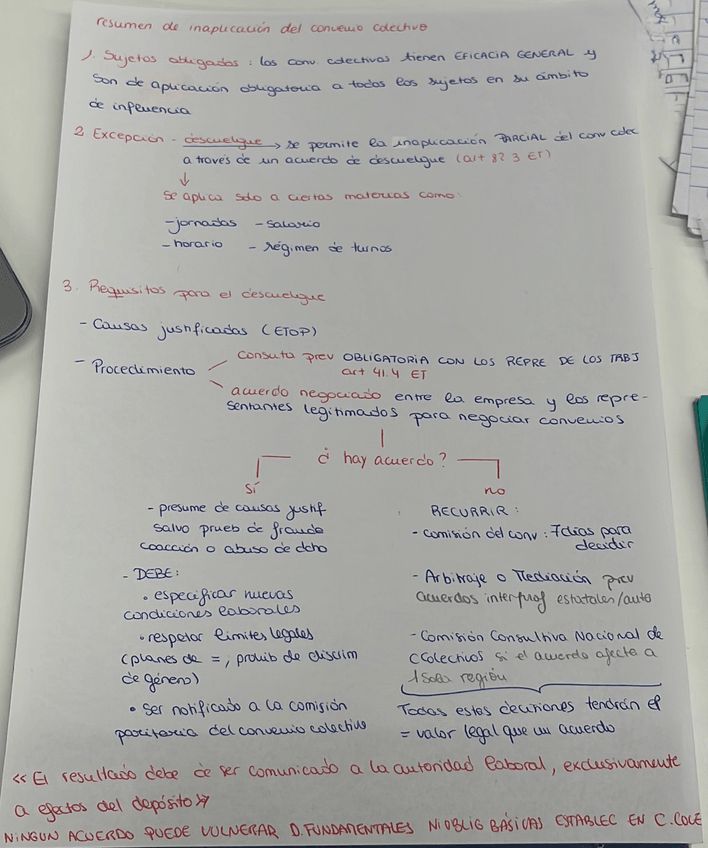 resumen de inaplicación del convenio colectivo
1. Sujetos obligados: los conv. colectivos tienen EFICACIA GENERAL y
son de aplicación obligatoria a todos los sujetos en su ámbito
de influencia
2. Excepción - descuelgue → se permite la inaplicación PARCIAL del conv colec
a través de un acuerdo de descuelgue (art 82.3 ET)
↓
se aplica solo a ciertas materias como:
- jornadas - salario
- horario - régimen de turnos
3. Requisitos para el descuelgue
- Causas justificadas (ETOP)
- Procedimiento
consulta prev OBLIGATORIA CON LOS REPRE DE LOS TRABJ
art 41.4 ET
acuerdo negociado entre la empresa y los repre-
sentantes legitimados para negociar convenios
¿hay acuerdo?
sí
- presume de causas justif
salvo prueb de fraude
coacción o abuso de dcho
- DEBE:
• especificar nuevas
condiciones laborales
• respetar límites legales
(planes de =, prohib de discrim
de género)
• ser notificado a la comisión
paritaria del convenio colectivo
no
RECURRIR:
- comisión del conv: 7 días para
decidir
- Arbitraje o Mediación prev
acuerdos interprof estatales/auto
- Comisión Consultiva Nacional de
CColectivos si el acuerdo afecte a
1 sola región
Todas estas decisiones tendrán el
= valor legal que un acuerdo
<< El resultado debe de ser comunicado a la autoridad laboral, exclusivamente
a efectos del depósito >>
NINGUN ACUERDO PUEDE VULNERAR D.FUNDAMENTALES NI OBLIG BÁSICAS ESTABLEC EN C.COLE